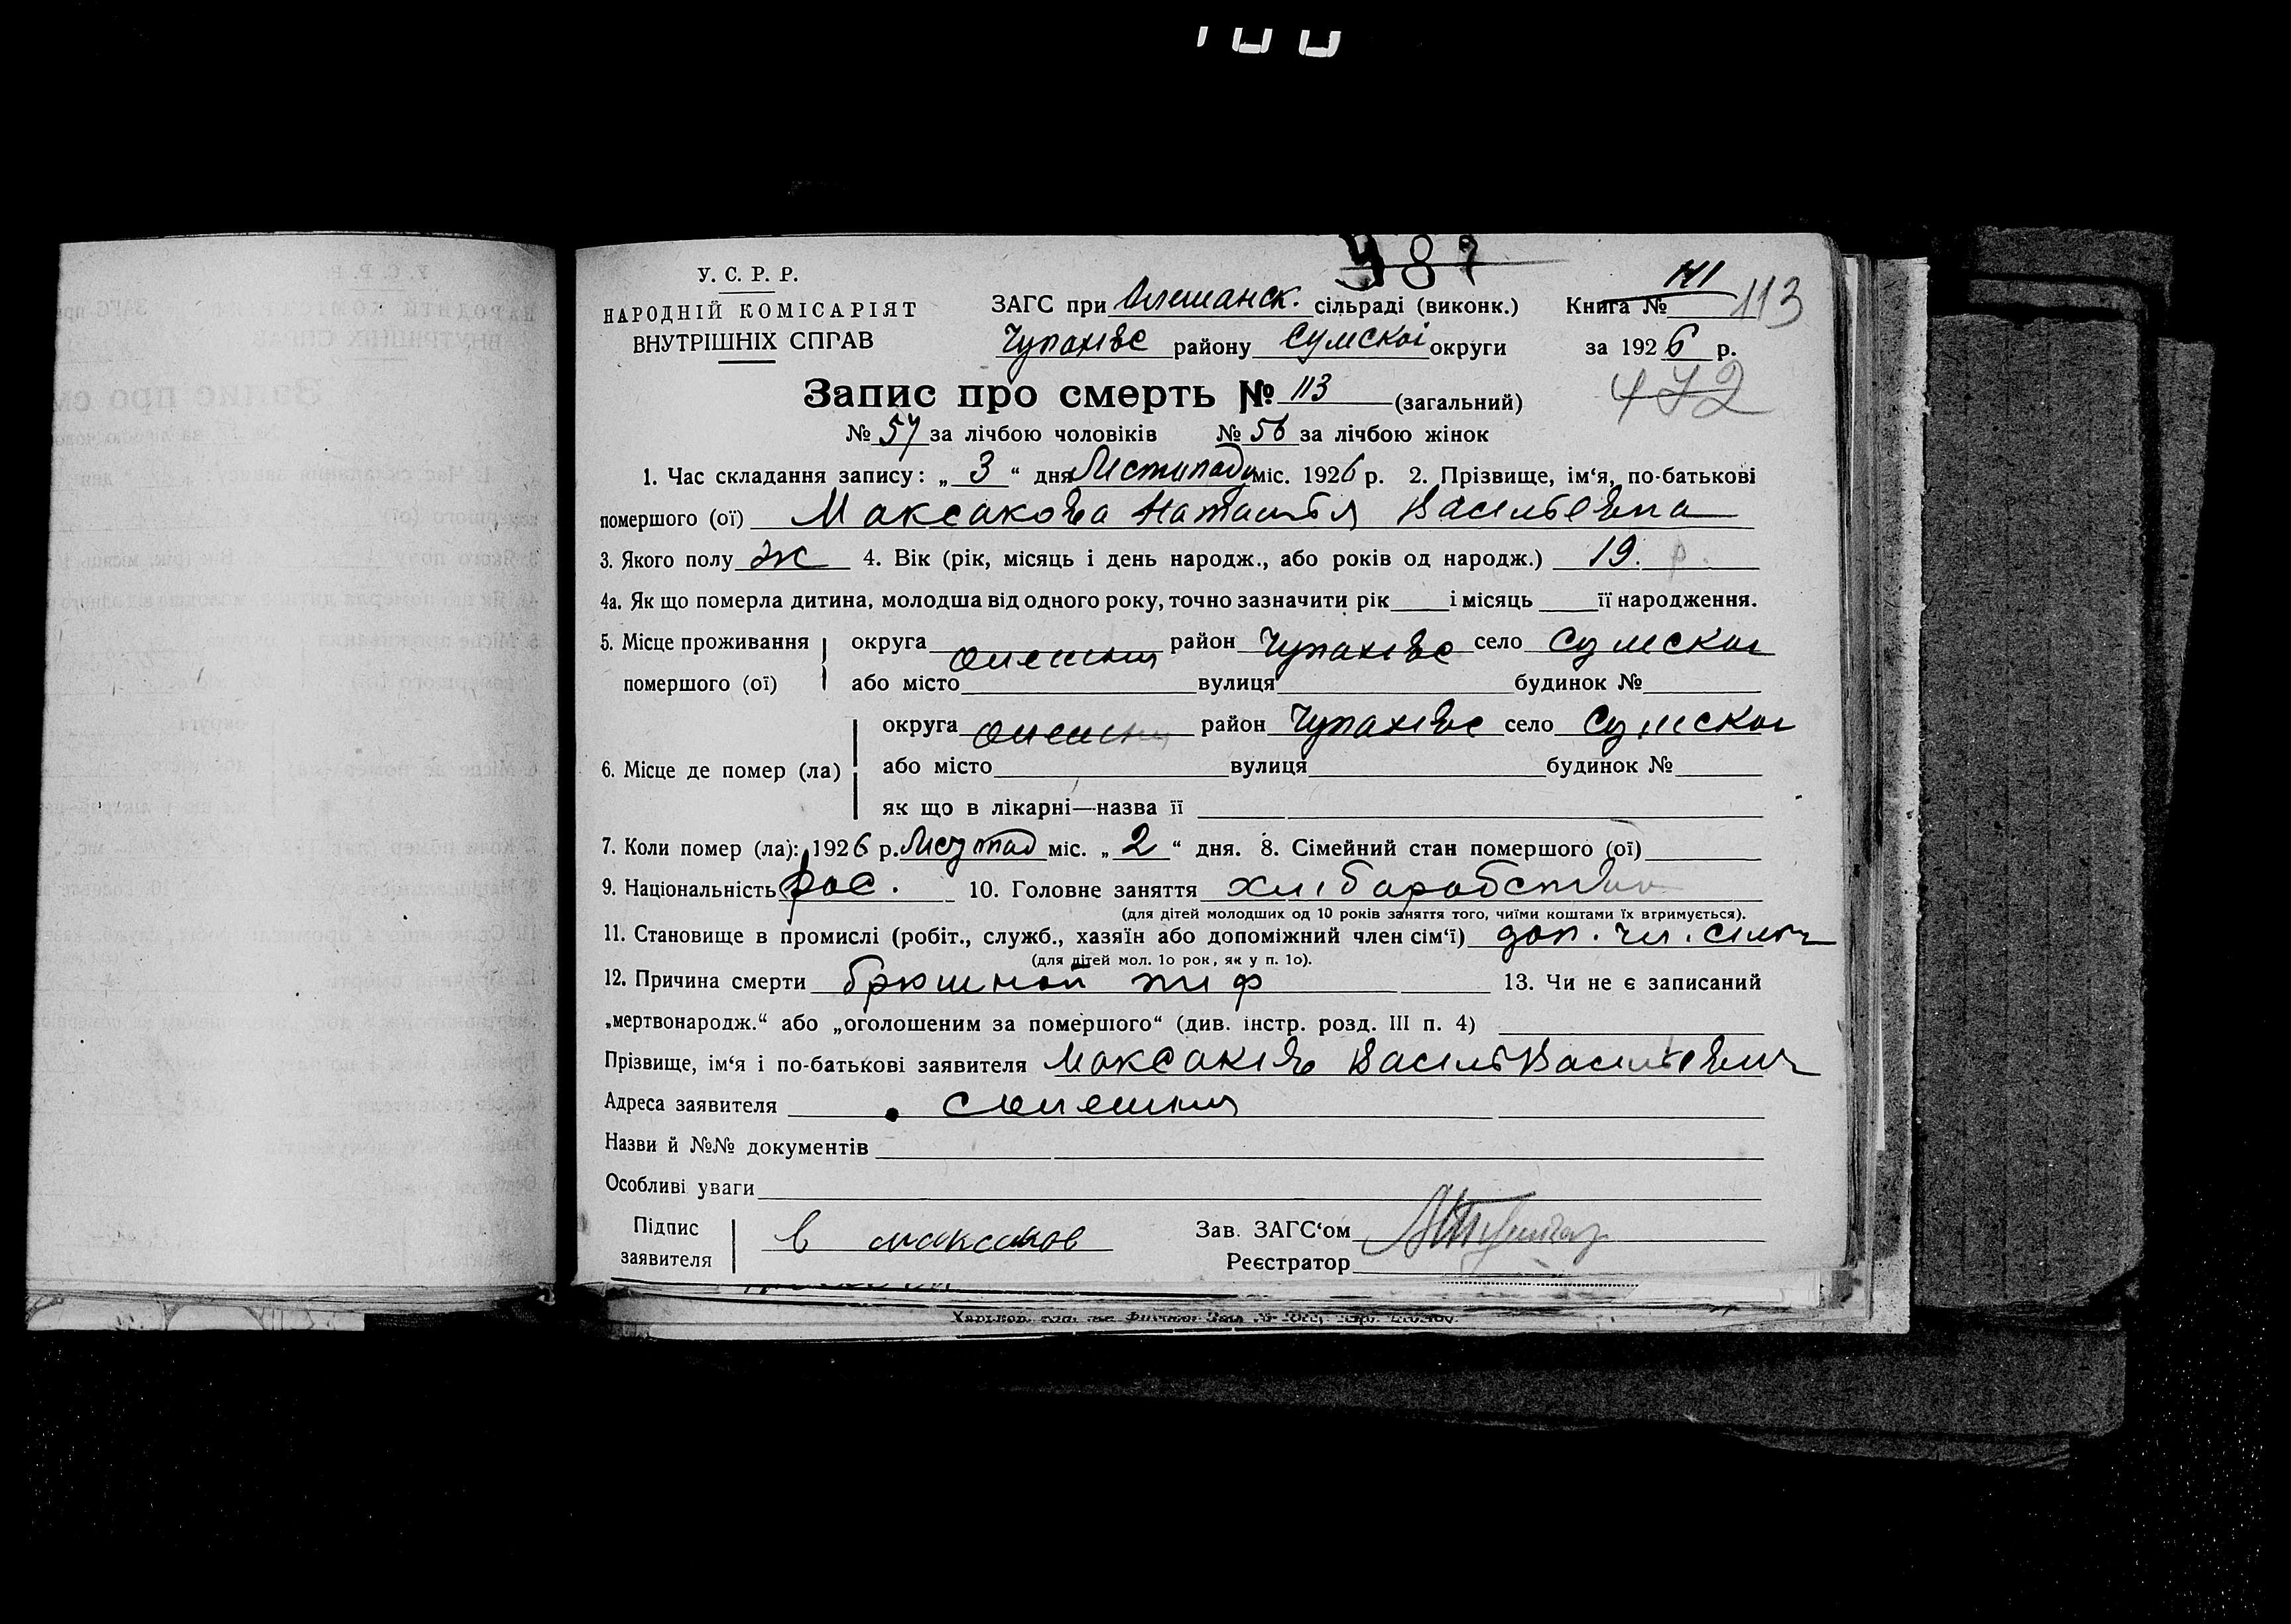 987
У. С. Р. Р.
НАРОДНІЙ КОМІСАРІЯТ
ВНУТРІШНІХ СПРАВ
ЗАГС при Олешанск. сільраді (виконк.)
Чупахівс району Сумскої округи
Книга № 111 113
за 1926 р.
472
Запис про смерть № 113 (загальний)
№ 57 за лічбою чоловіків № 56 за лічбою жінок
1. Час складання запису: „ 3 “ дня Листипада міс. 1926 р. 2. Прізвище, ім‘я, по-батькові
помершого (ої) Максакова Наталья Васильевна
3. Якого полу ж 4. Вік (рік, місяць і день народж., або років од народж.) 19. р.
4а. Як що померла дитина, молодша від одного року, точно зазначити рік і місяць її народження.
5. Місце проживання помершого (ої) округа Олешня район Чупахівс село Сумскої
або місто вулиця будинок №
6. Місце де помер (ла) округа Олешня район Чупахівс село Сумскої
або місто вулиця будинок №
як що в лікарні—назва її
7. Коли помер (ла): 1926 р. міс. „ 2 “ дня. 8. Сімейний стан помершого (ої)
9. Національність рос. 10. Головне заняття хлібаробство
(для дітей молодших од 10 років заняття того, чиїми коштами їх втримується).
11. Становище в промислі (робіт., служб., хазяїн або допоміжний член сім‘ї) доп. чл. сімї
(для дітей мол. 1о рок, як у п. 1о).
12. Причина смерти брюшной тиф 13. Чи не є записаний
„мертвонародж.“ або „оголошеним за помершого“ (див. інстр. розд. III п. 4)
Прізвище, ім‘я і по-батькові заявителя Максаків Василь Васильевич
Адреса заявителя с Олешня
Назви й №№ документів
Особливі уваги
Підпис заявителя В Максаков
Зав. ЗАГС‘ом
Реєстратор